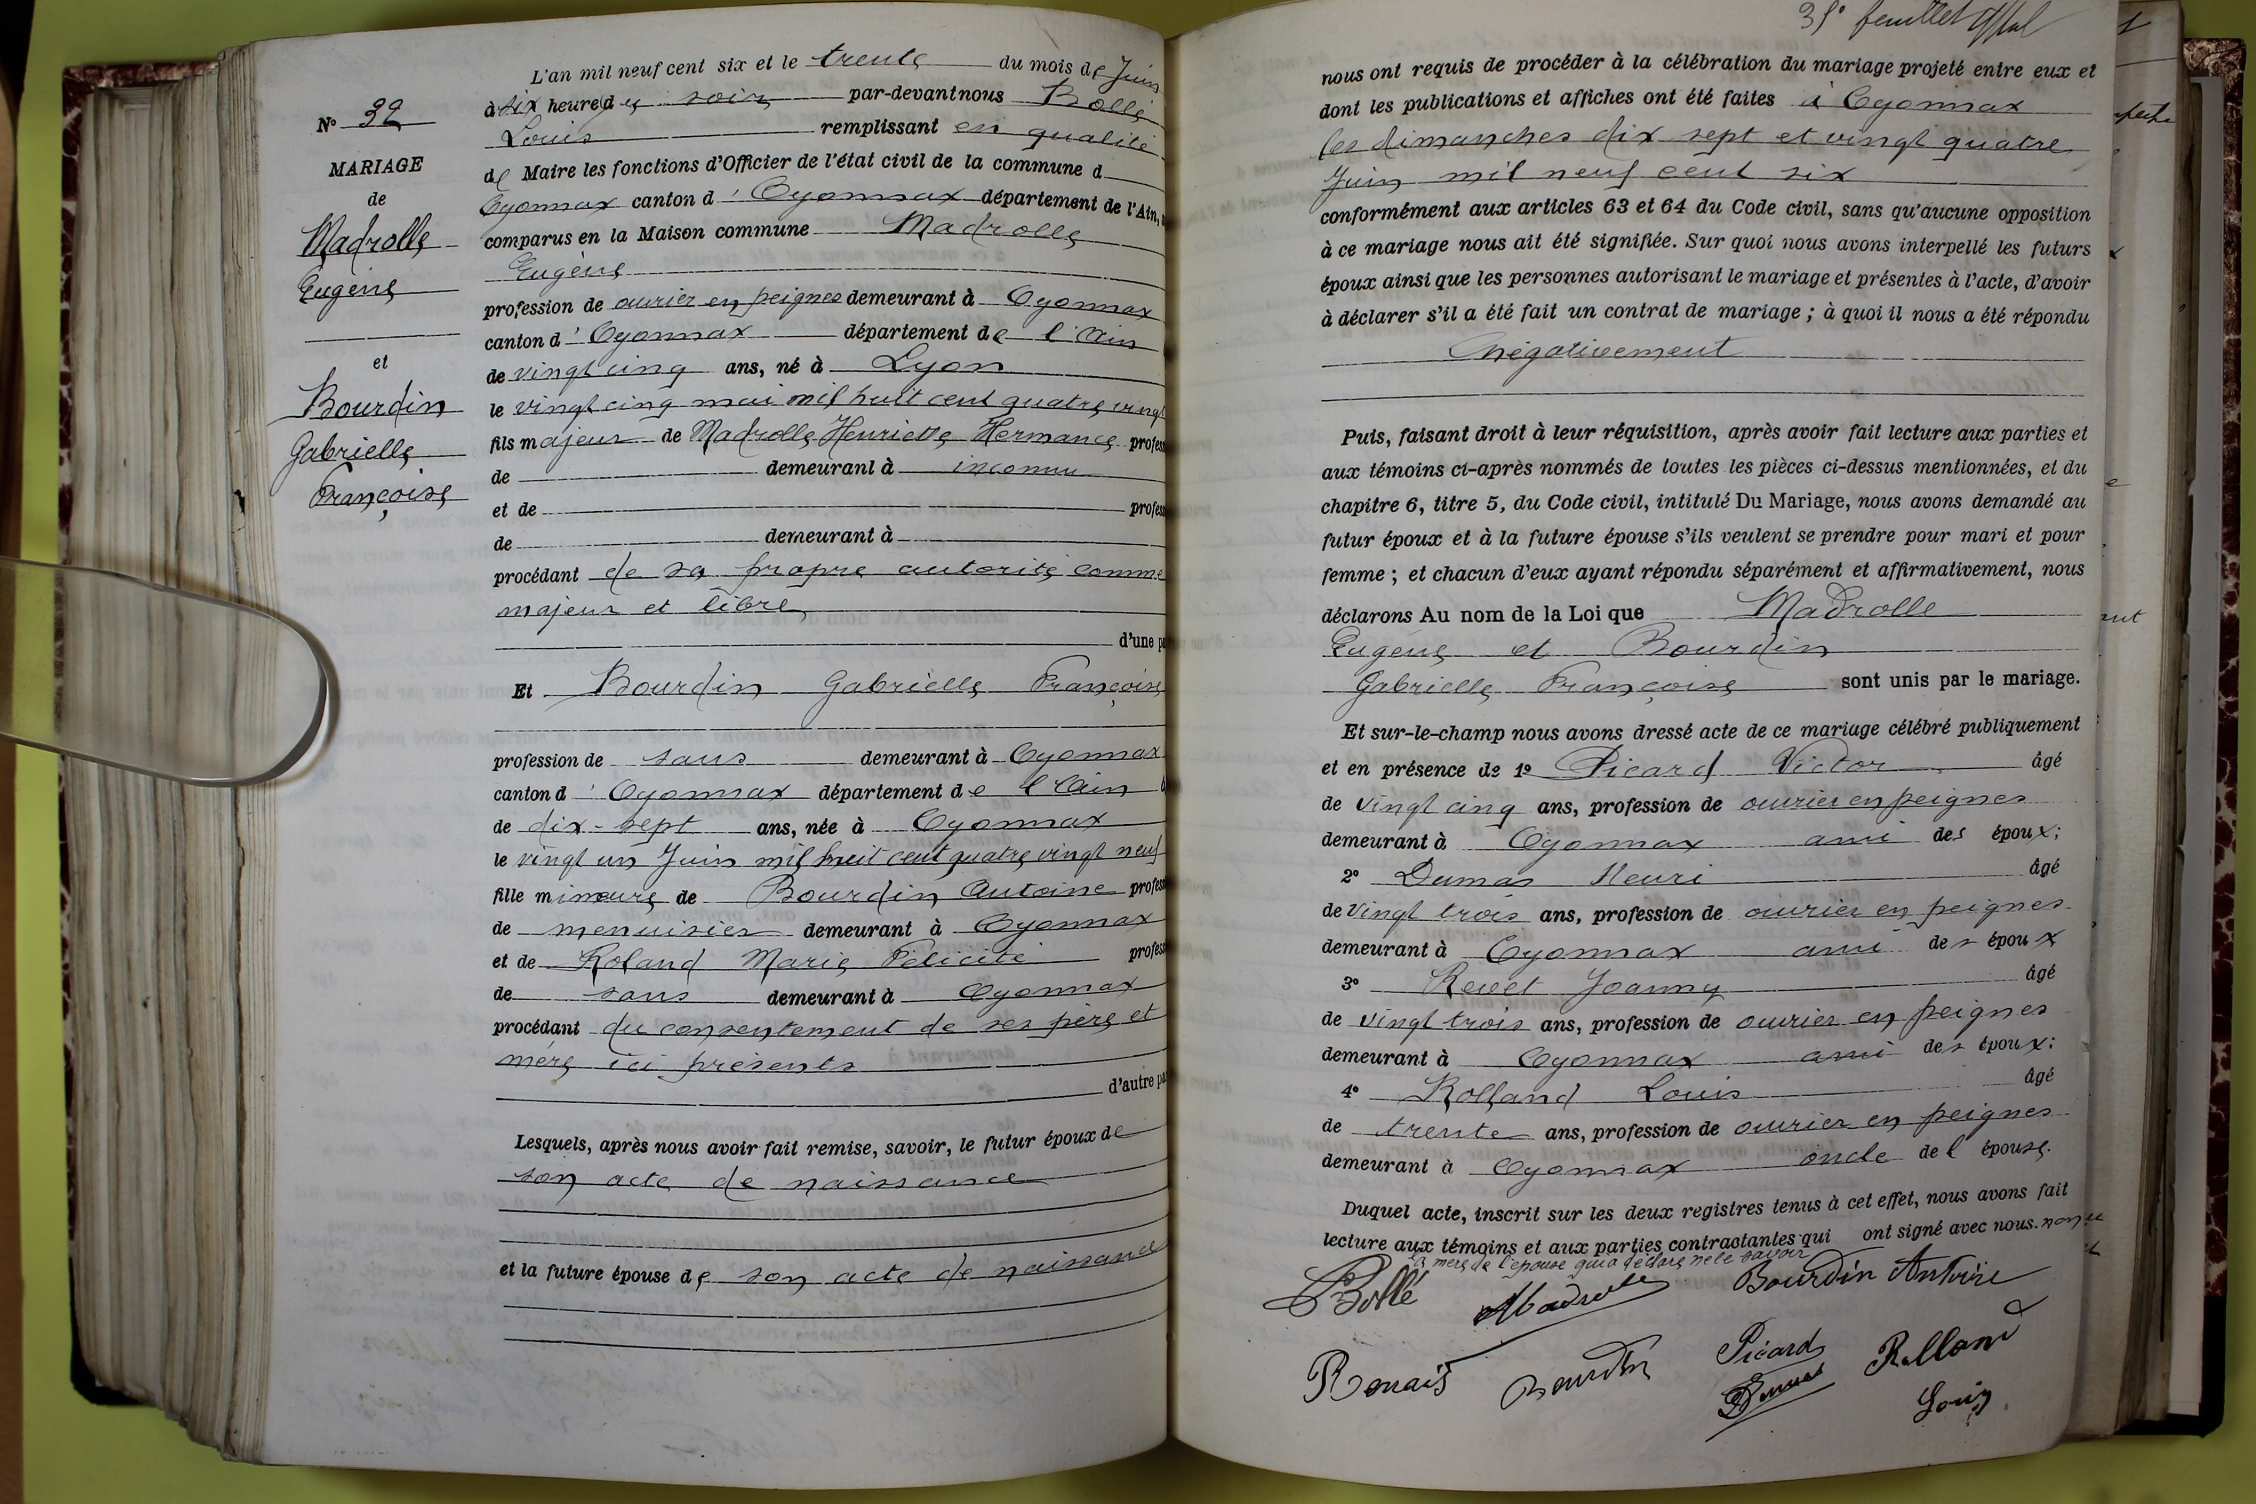 N° 32
MARIAGE
de
Madrolle
Eugène
et
Bourdin
Gabrielle
Françoise
L'an mil neuf cent six et le trente du mois de Juin
à six heures du soir par-devant nous Bollé
Louis remplissant en qualité
de Maire les fonctions d'Officier de l'état civil de la commune d
Oyonnax canton d'Oyonnax département de l'Ain,
comparus en la Maison commune Madrolle
Eugène
profession de ouvrier en peignes demeurant à Oyonnax
canton d'Oyonnax département de l'Ain
de vingt cinq ans, né à Lyon
le vingt cinq mai mil huit cent quatre vingt
fils majeur de Madrolle Henriette Hermance profess
de demeurant à inconnu
et de profess
de demeurant à
procédant de sa propre autorité comme
majeur et libre
d'une pa
Et Bourdin Gabrielle Françoise
profession de sans demeurant à Oyonnax
canton d'Oyonnax département de l'Ain
de dix-sept ans, née à Oyonnax
le vingt un Juin mil huit cent quatre vingt neuf
fille mineure de Bourdin Antoine profess
de menuisier demeurant à Oyonnax
et de Roland Marie Félicité profess
de sans demeurant à Oyonnax
procédant du consentement de ses père et
mère ici présents
d'autre pa
Lesquels, après nous avoir fait remise, savoir, le futur époux de
son acte de naissance
et la future épouse de son acte de naissance
35e feuillet
nous ont requis de procéder à la célébration du mariage projeté entre eux et
dont les publications et affiches ont été faites à Oyonnax
les dimanches dix sept et vingt quatre
Juin mil neuf cent six
conformément aux articles 63 et 64 du Code civil, sans qu'aucune opposition
à ce mariage nous ait été signifiée. Sur quoi nous avons interpellé les futurs
époux ainsi que les personnes autorisant le mariage et présentes à l'acte, d'avoir
à déclarer s'il a été fait un contrat de mariage ; à quoi il nous a été répondu
négativement
Puis, faisant droit à leur réquisition, après avoir fait lecture aux parties et
aux témoins ci-après nommés de toutes les pièces ci-dessus mentionnées, et du
chapitre 6, titre 5, du Code civil, intitulé Du Mariage, nous avons demandé au
futur époux et à la future épouse s'ils veulent se prendre pour mari et pour
femme ; et chacun d'eux ayant répondu séparément et affirmativement, nous
déclarons Au nom de la Loi que Madrolle
Eugène et Bourdin
Gabrielle Françoise sont unis par le mariage.
Et sur-le-champ nous avons dressé acte de ce mariage célébré publiquement
et en présence de 1° Picard Victor âgé
de vingt cinq ans, profession de ouvrier en peignes
demeurant à Oyonnax ami des époux;
2° Dumas Henri âgé
de vingt trois ans, profession de ouvrier en peignes
demeurant à Oyonnax ami des époux
3° Revet Joanny âgé
de vingt trois ans, profession de ouvrier en peignes
demeurant à Oyonnax ami des époux;
4° Rolland Louis âgé
de trente ans, profession de ouvrier en peignes
demeurant à Oyonnax oncle de l'épouse.
Duquel acte, inscrit sur les deux registres tenus à cet effet, nous avons fait
lecture aux témoins et aux parties contractantes qui ont signé avec nous. non
la mère de l'épouse qui a déclaré ne le savoir
Bollé Madrolle Bourdin Antoine
Bourdin Picard Rolland
Louis